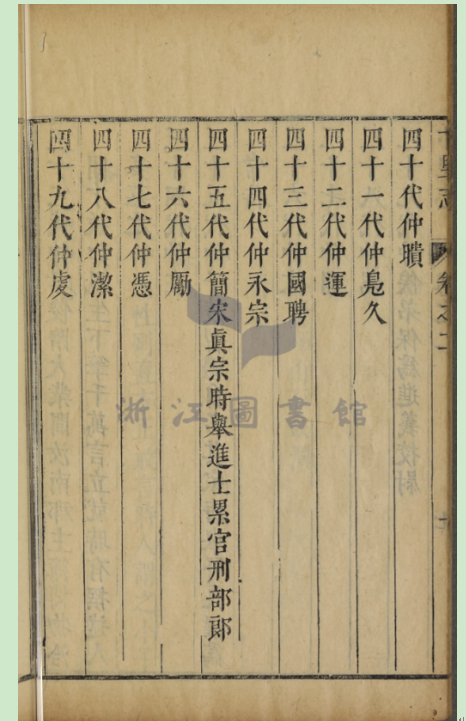 卷之二
四十代仲璝
四十一代仲皃久
四十二代仲運
四十三代仲國聘
四十四代仲永宗
四十五代仲簡宋眞宗時舉進士累官刑部郎
四十六代仲勵
四十七代仲憑
四十八代仲潔
四十九代仲虔
浙江圖書館